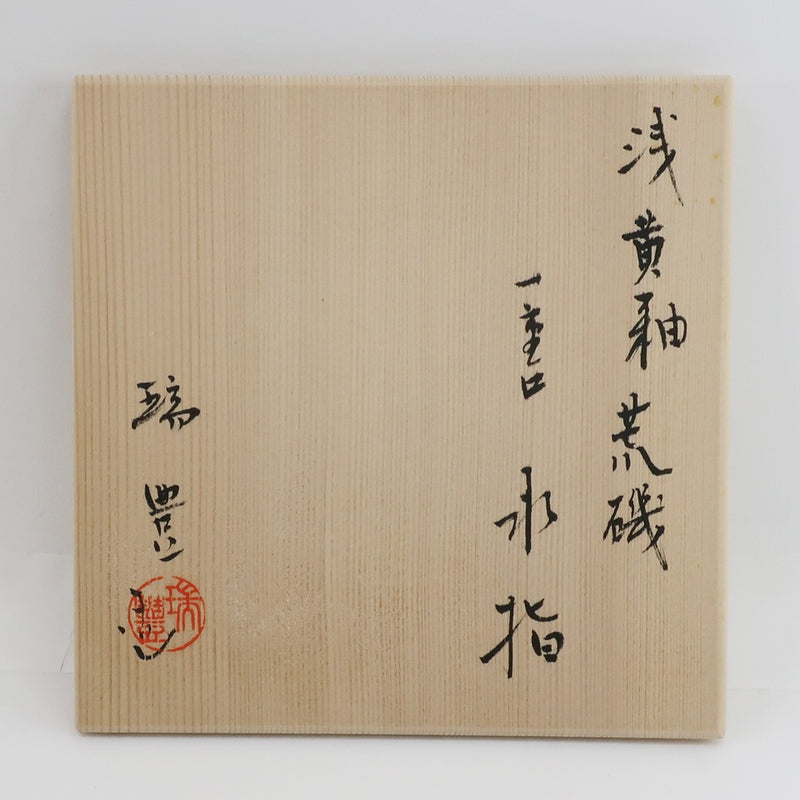 浅黄釉荒磯
一重口
水指
瑞豊造
瑞豊